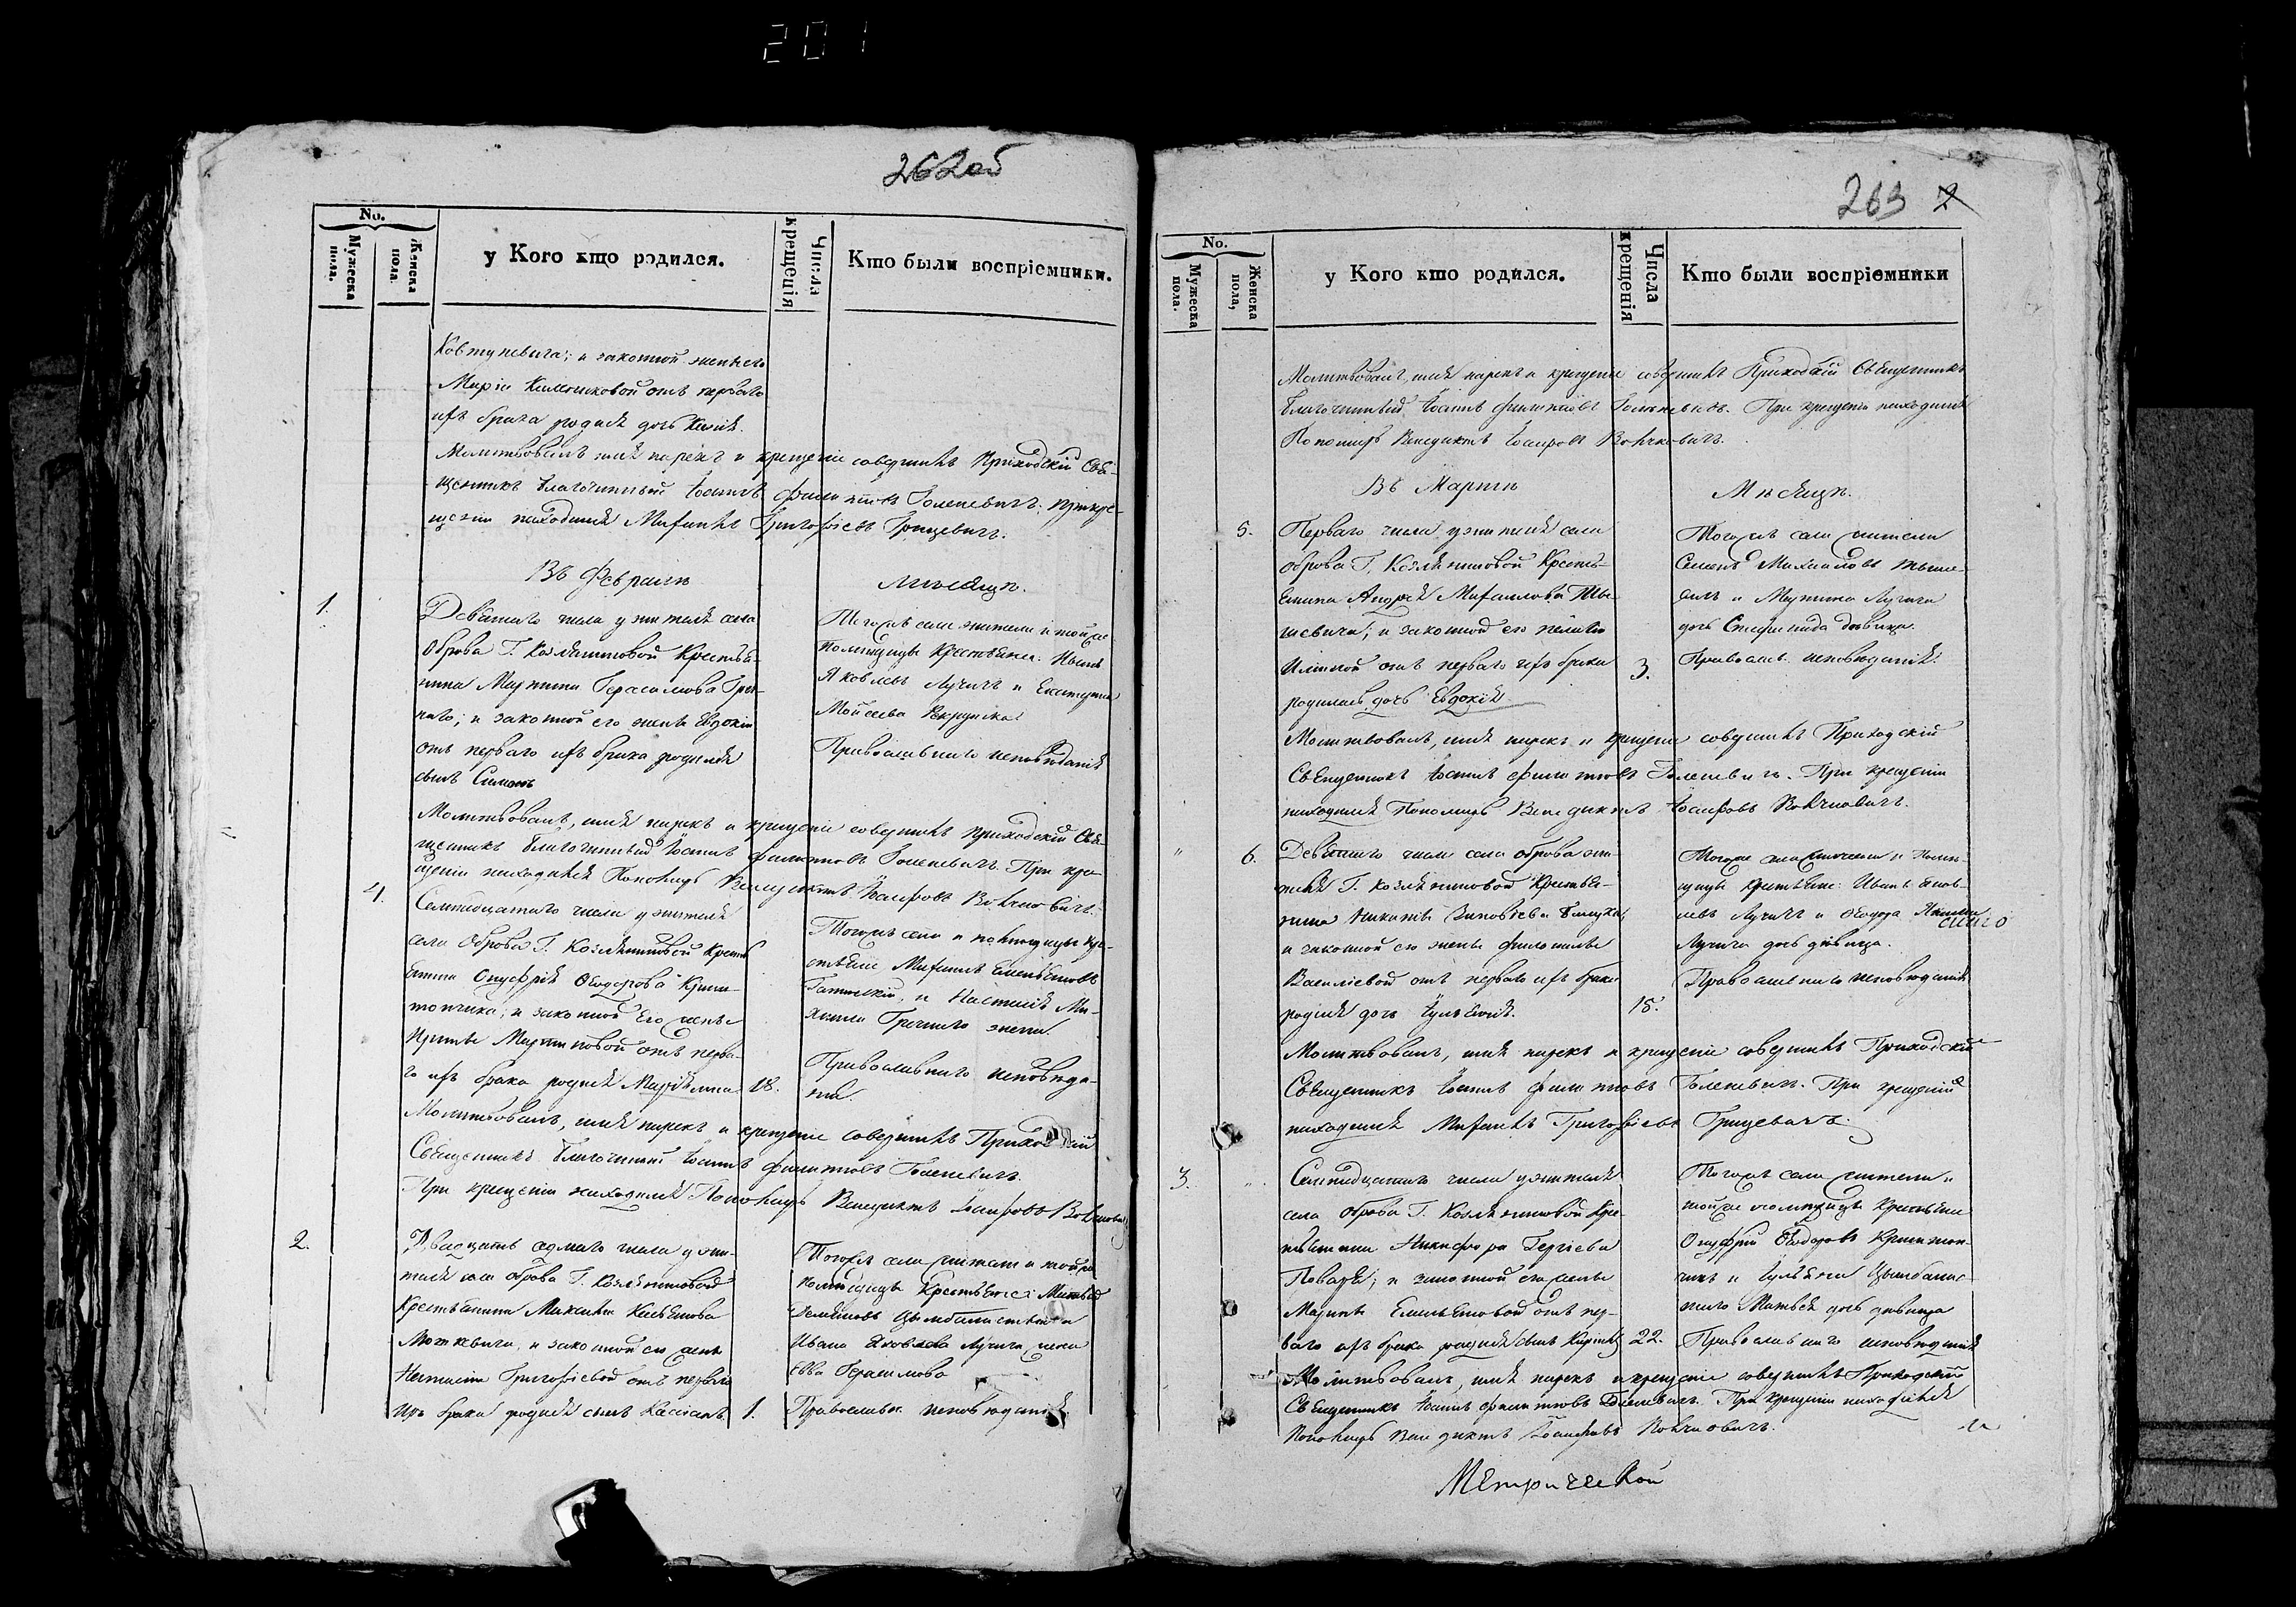 201
262об
No.
Мужеска пола.
Женска пола.
у Кого кто родился.
Числа крещенія
Кто были воспріемники.
Ковтуневича; и законной жены его
Маріи Климятковой отъ перваго
ихъ брака родися дочь
Молитвовалъ, имя нарекъ и крещеніе совершилъ Приходскій Свя-
щенникъ Благочинный Іоаннъ Филиповъ Голеневичъ. При кре-
щеніи находился Михаилъ Григорьевъ Грицевичъ.
Въ Февралѣ
мѣсяцѣ.
1.
Девятаго числа у жителя села
Оброва Г. Козляниновой Крестья-
нина Мартина Герасимова Греч-
наго; и законной его жены Евдокіи
отъ перваго ихъ брака родился
сынъ Симонъ
Тогожъ села жители и тойже
Помѣщицы Крестьяне:
Яковлевъ Лучичъ и Екатерина
Мойсеева
Православнаго исповѣданія
Молитвовалъ, имя нарекъ и крещеніе совершилъ приходскій Свя-
щенникъ Благочинный Іоаннъ Филиповъ Голеневичъ. При кре-
щеніи находился Пономарь Венедиктъ Іосифовъ Волчковичъ.
4.
Семнадцатаго числа у жителя
села Оброва Г. Козляниновой Кресть
янина Онуфрія Ѳеодорова Крини-
тончика; и законной Его жены
Ирины Мартиновой отъ перва-
го ихъ брака родися Маріямна
18.
Тогожъ села и помѣщицы Кре-
стьяне Михаилъ Емельяновъ
и Настасія Ми-
хаила Гречнаго жена.
Православнаго исповѣда-
нія.
Молитвовалъ, имя нарекъ и крещеніе совершилъ Приходскій
Священникъ Благочинный Іоаннъ Филиповъ Голеневичъ.
При крещеніи находился Пономарь Венедиктъ Іосифовъ
2.
Двадцать седмаго числа у жи-
теля села Оброва Г. Козляниновой
Крестьянина Максима Касьянова
Моткевича, и законной его жены
Настасіи Григорьевой отъ перваго
ихъ брака родися сынъ Кассіанъ.
1.
Тогожъ села жители и тойже
помѣщицы Крестьяне: Матвей
Демяновъ
Ивана Яковлева Лучича жена
Евва Герасимова
Православн. исповѣданія
263 2
No.
Мужеска пола.
Женска пола,
у Кого кто родился.
Числа крещенія
Кто были воспріемники
Молитвовалъ, имя нарекъ и крещеніе совершилъ Приходскій Священникъ
Благочинный Іоаннъ Филиповъ Голеневичъ. При крещеніи находился
Пономарь Венедиктъ Іосифовъ Волчковичъ.
Въ Мартѣ
Мѣсяцѣ.
5.
Перваго числа у жителя села
Оброва Г. Козляниновой Кресть-
янина Андрея Михаилова Ты-
шевича; и законной его
отъ перваго ихъ брака
родилась дочь Евдокія
3.
Тогожъ села жители
Семенъ Михаиловъ
и Мартина Лучича
дочь Степанида дѣвица.
Православ. исповѣданія.
Молитвовалъ, имя нарекъ и крещеніе совершилъ Приходскій
Священникъ Іоаннъ Филиповъ Голеневичъ. При крещеніи
находился Пономарь Венедиктъ Іосифовъ Волчковичъ.
" 6.
Девятаго числа села Оброва жи-
теля Г. Козляниновой Крестья-
нина Никиты Зиновіева
и законной его жены
Василіевой отъ перваго ихъ брака
родися дочь Іульянія.
15.
Тогоже села жители и Помѣ-
щицы крестьяне: Иванъ Яков-
левъ Лучичъ и Ѳеодора
Лучича дочь дѣвица.
Православнаго исповѣданія
Молитвовалъ, имя нарекъ и крещеніе совершилъ Приходскій
Священникъ Іоаннъ Филиповъ Голеневичъ. При крещеніи
находился Михаилъ Григорьевъ Грицевичъ.
3. "
Семнадцатаго числа у жителя
села Оброва Г. Козляниновой Кре-
стьянина Никифора Гергіева
и законной его жены
Марины Емельяновой отъ пер-
ваго ихъ брака родися сынъ Кирилъ
22.
Тогожъ села жители и
тойже помѣщицы Крестьяне
Онуфрій Ѳеодоровъ Кринитон-
чикъ и Іульяна Цымбалис-
таго Матвея дочь дѣвица
Православнаго исповѣданія
Молитвовалъ, имя нарекъ и крещеніе совершилъ Приходскій
Священникъ Іоаннъ Филиповъ Голеневичъ. При крещеніи находился
Пономарь Венедиктъ Іосифовъ Волчковичъ.
Метрической